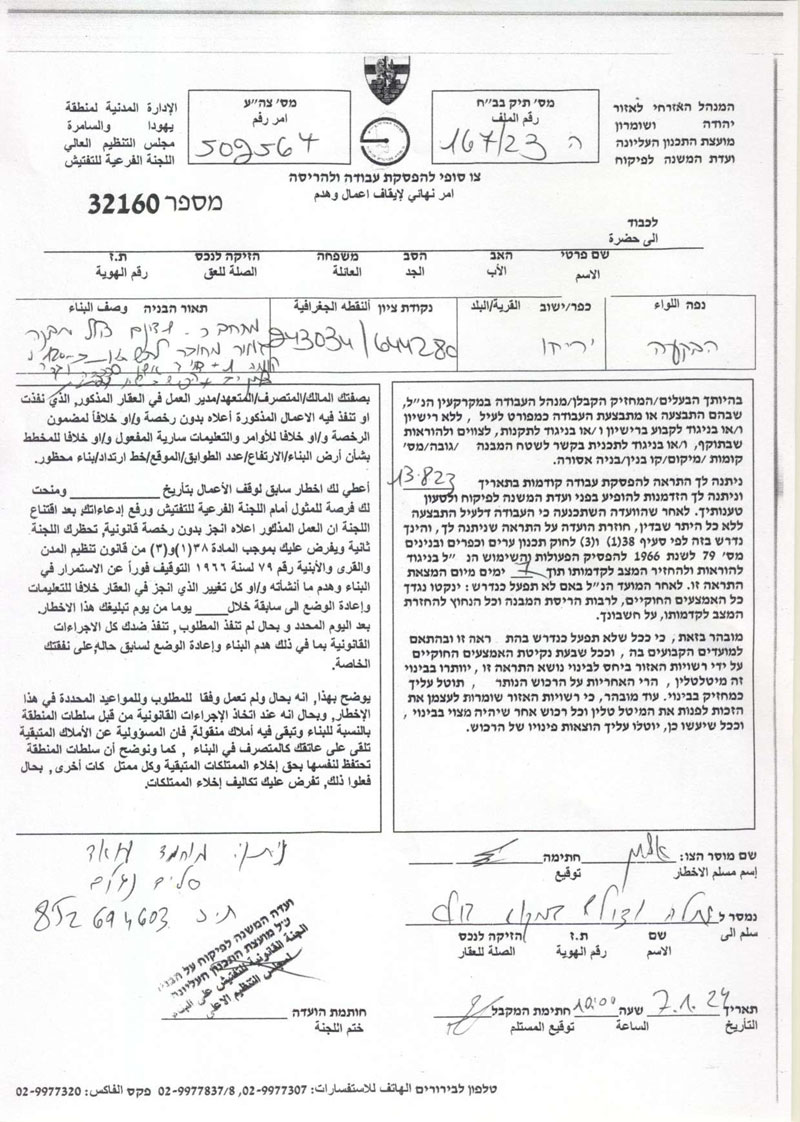 המנהל האזרחי לאזור
יהודה ושומרון
מועצת התכנון העליונה
ועדת המשנה לפיקוח
מס׳ תיק בב״ח
رقم الملف
ה 167/23
מס׳ צה״ע
امر رقم
509564
الإدارة المدنية لمنطقة
يهودا والسامرة
مجلس التنظيم العالي
اللجنة الفرعية للتفتيش
צו סופי להפסקת עבודה ולהריסה
امر نهائي لإيقاف اعمال وهدم
מספר 32160
לכבוד
الى حضرة
שם פרטי האב הסב משפחה הזיקה לנכס ת.ז
الاسم الأب الجد العائلة الصلة للعق رقم الهوية
נפה اللواء
הבקעה
כפר/ישוב القرية/البلد
יריחו
נקודת ציון النقطه الجغرافية
243034/644280
תאור הבניה وصف البناء
בהיותך הבעלים/המחזיק הקבלן/מנהל העבודה במקרקעין הנ״ל,
שבהם התבצעה או מתבצעת העבודה כמפורט לעיל , ללא רישיון
ו/או בניגוד לקבוע ברישיון ו/או בניגוד לתקנות, לצווים ולהוראות
שבתוקף, ו/או בניגוד לתכנית בקשר לשטח המבנה /גובה/מס׳
קומות /מיקום/קו בנין/בניה אסורה.
ניתנה לך התראה להפסקת עבודה קודמות בתאריך 13.8.23
וניתנה לך הזדמנות להופיע בפני ועדת המשנה לפיקוח ולטעון
טענותיך. לאחר שהוועדה השתכנעה כי העבודה דלעיל התבצעה
ללא כל היתר שבדין, חוזרת הועדה על התראה שניתנה לך, והינך
נדרש בזה לפי סעיף 38(1) ו(3) לחוק תכנון ערים וכפרים ובניינים
מס׳ 79 לשנת 1966 להפסיק הפעולות והשימוש הנ ״ל בניגוד
להוראות ולהחזיר המצב לקדמותו תוך 7 ימים מיום המצאת
התראה זו. לאחר המועד הנ״ל באם לא תפעל כנדרש : ינקטו נגדך
כל האמצעים החוקיים, לרבות הריסת המבנה וכל הנחוץ להחזרת
המצב לקדמותו, על חשבונך.
מובהר בזאת , כי ככל שלא תפעל כנדרש בהת ראה זו ובהתאם
למועדים הקבועים בה , וככל שבעת נקיטת האמצעים החוקיים
על ידי רשויות האזור ביחס לבינוי נושא התראה זו , יוותרו בבינוי
זה מיטלטלין , הרי האחריות על הרכוש הנותר , תוטל עליך
כמחזיק בבינוי. עוד מובהר, כי רשויות האזור שומרות לעצמן את
הזכות לפנות את המיטל טלין וכל רכוש אחר שיהיה מצוי בבינוי ,
וככל שיעשו כן, יוטלו עליך הוצאות פינויו של הרכוש.
بصفتك المالك/المتصرف/المتعهد/مدير العمل في العقار المذكور, الذي نفذت
او تنفذ فيه الاعمال المذكورة أعلاه بدون رخصة و/او خلافاً لمضمون
الرخصة و/او خلافا للأوامر والتعليمات سارية المفعول و/او خلافا للمخطط
بشأن أرض البناء/الارتفاع/عدد الطوابق/الموقع/خط ارتداد/بناء محظور.
أعطي لك اخطار سابق لوقف الأعمال بتأريخ ومنحت
لك فرصة للمثول أمام اللجنة الفرعية للتفتيش ورفع إدعاءاتك, بعد اقتناع
اللجنة ان العمل المذكور اعلاه انجز بدون رخصة قانونية, تحظرك اللجنة
ثانية ويفرض عليك بموجب المادة ٣٨(١)و(٣) من قانون تنظيم المدن
والقرى والأبنية رقم ٧٩ لسنة ١٩٦٦ التوقيف فوراً عن الاستمرار في
البناء وهدم ما أنشأته و/او كل تغيير الذي انجز في العقار خلافا للتعليمات
وإعادة الوضع الى سابقة خلال يوما من يوم تبليغك هذا الاخطار.
بعد اليوم المحدد و بحال لم تنفذ المطلوب , تنفذ ضدك كل الاجراءات
القانونية بما في ذلك هدم البناء وإعادة الوضع لسابق حاله, على نفقتك
الخاصة.
يوضح بهذا, انه بحال ولم تعمل وفقا للمطلوب وللمواعيد المحددة في هذا
الإخطار, وبحال انه عند اتخاذ الإجراءات القانونية من قبل سلطات المنطقة
بالنسبة للبناء وتبقى فيه أملاك منقولة, فان المسؤولية عن الأملاك المتبقية
تلقى على عاتقك كالمتصرف في البناء , كما ونوضح أن سلطات المنطقة
تحتفظ لنفسها بحق إخلاء الممتلكات المتبقية وكل ممتل كات أخرى, بحال
فعلوا ذلك, تفرض عليك تكاليف إخلاء الممتلكات.
שם מוסר הצו: חתימה
إسم مسلم الاخطار توقيع
נמסר ל
سلم الى
שם ת.ז הזיקה לנכס
الاسم رقم الهوية الصلة للعقار
תאריך 7.1.24 שעה 10:00 חתימת המקבל
التأريخ الساعة توقيع المستلم
ת.ז 852694603
ועדה המשנה לפיקוח על הבנ
חותמת הועדה
ختم اللجنة
טלפון לבירורים الهاتف للاستفسارات: 02-9977307, 02-9977837/8 פקס الفاكس: 02-9977320